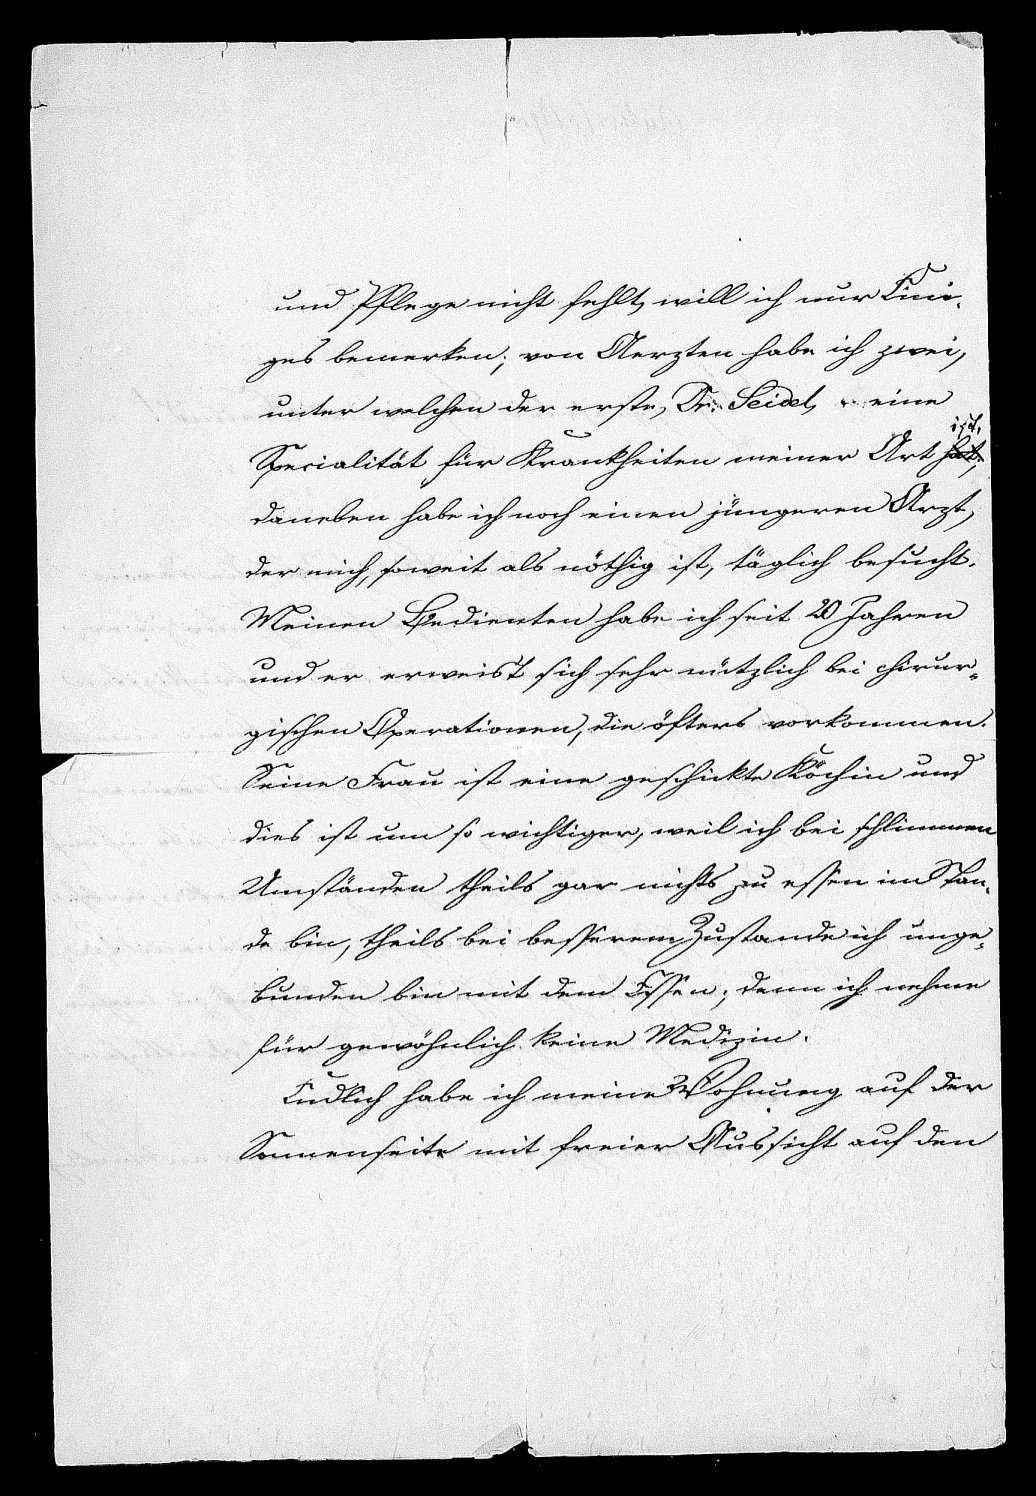 und Pflege nicht fehlt, will ich nur Eini-
ges bemerken; von Aerzten habe ich zwei,
unter welchen der erste, Dr. Seidel, eine
Specialität für Krankheiten meiner Art hat. ist,
daneben habe ich noch einen jüngeren Arzt,
der mich, soweit als nöthig ist, täglich besucht.
Meinen Bedienten habe ich seit 20 Jahren
und er erweist sich sehr nützlich bei chirur-
gischen Operationen, die öfters vorkommen.
Seine Frau ist eine geschickte Köchin und
dies ist um so wichtiger, weil ich bei schlimmen
Umständen theils gar nichts zu essen im Stan-
de bin, theils bei besserem Zustande ich unge-
bunden bin mit dem Essen; denn ich nehme
für gewöhnlich keine Medizin.
Endlich habe ich meine Wohnung auf der
Sonnenseite mit freier Aussicht auf den